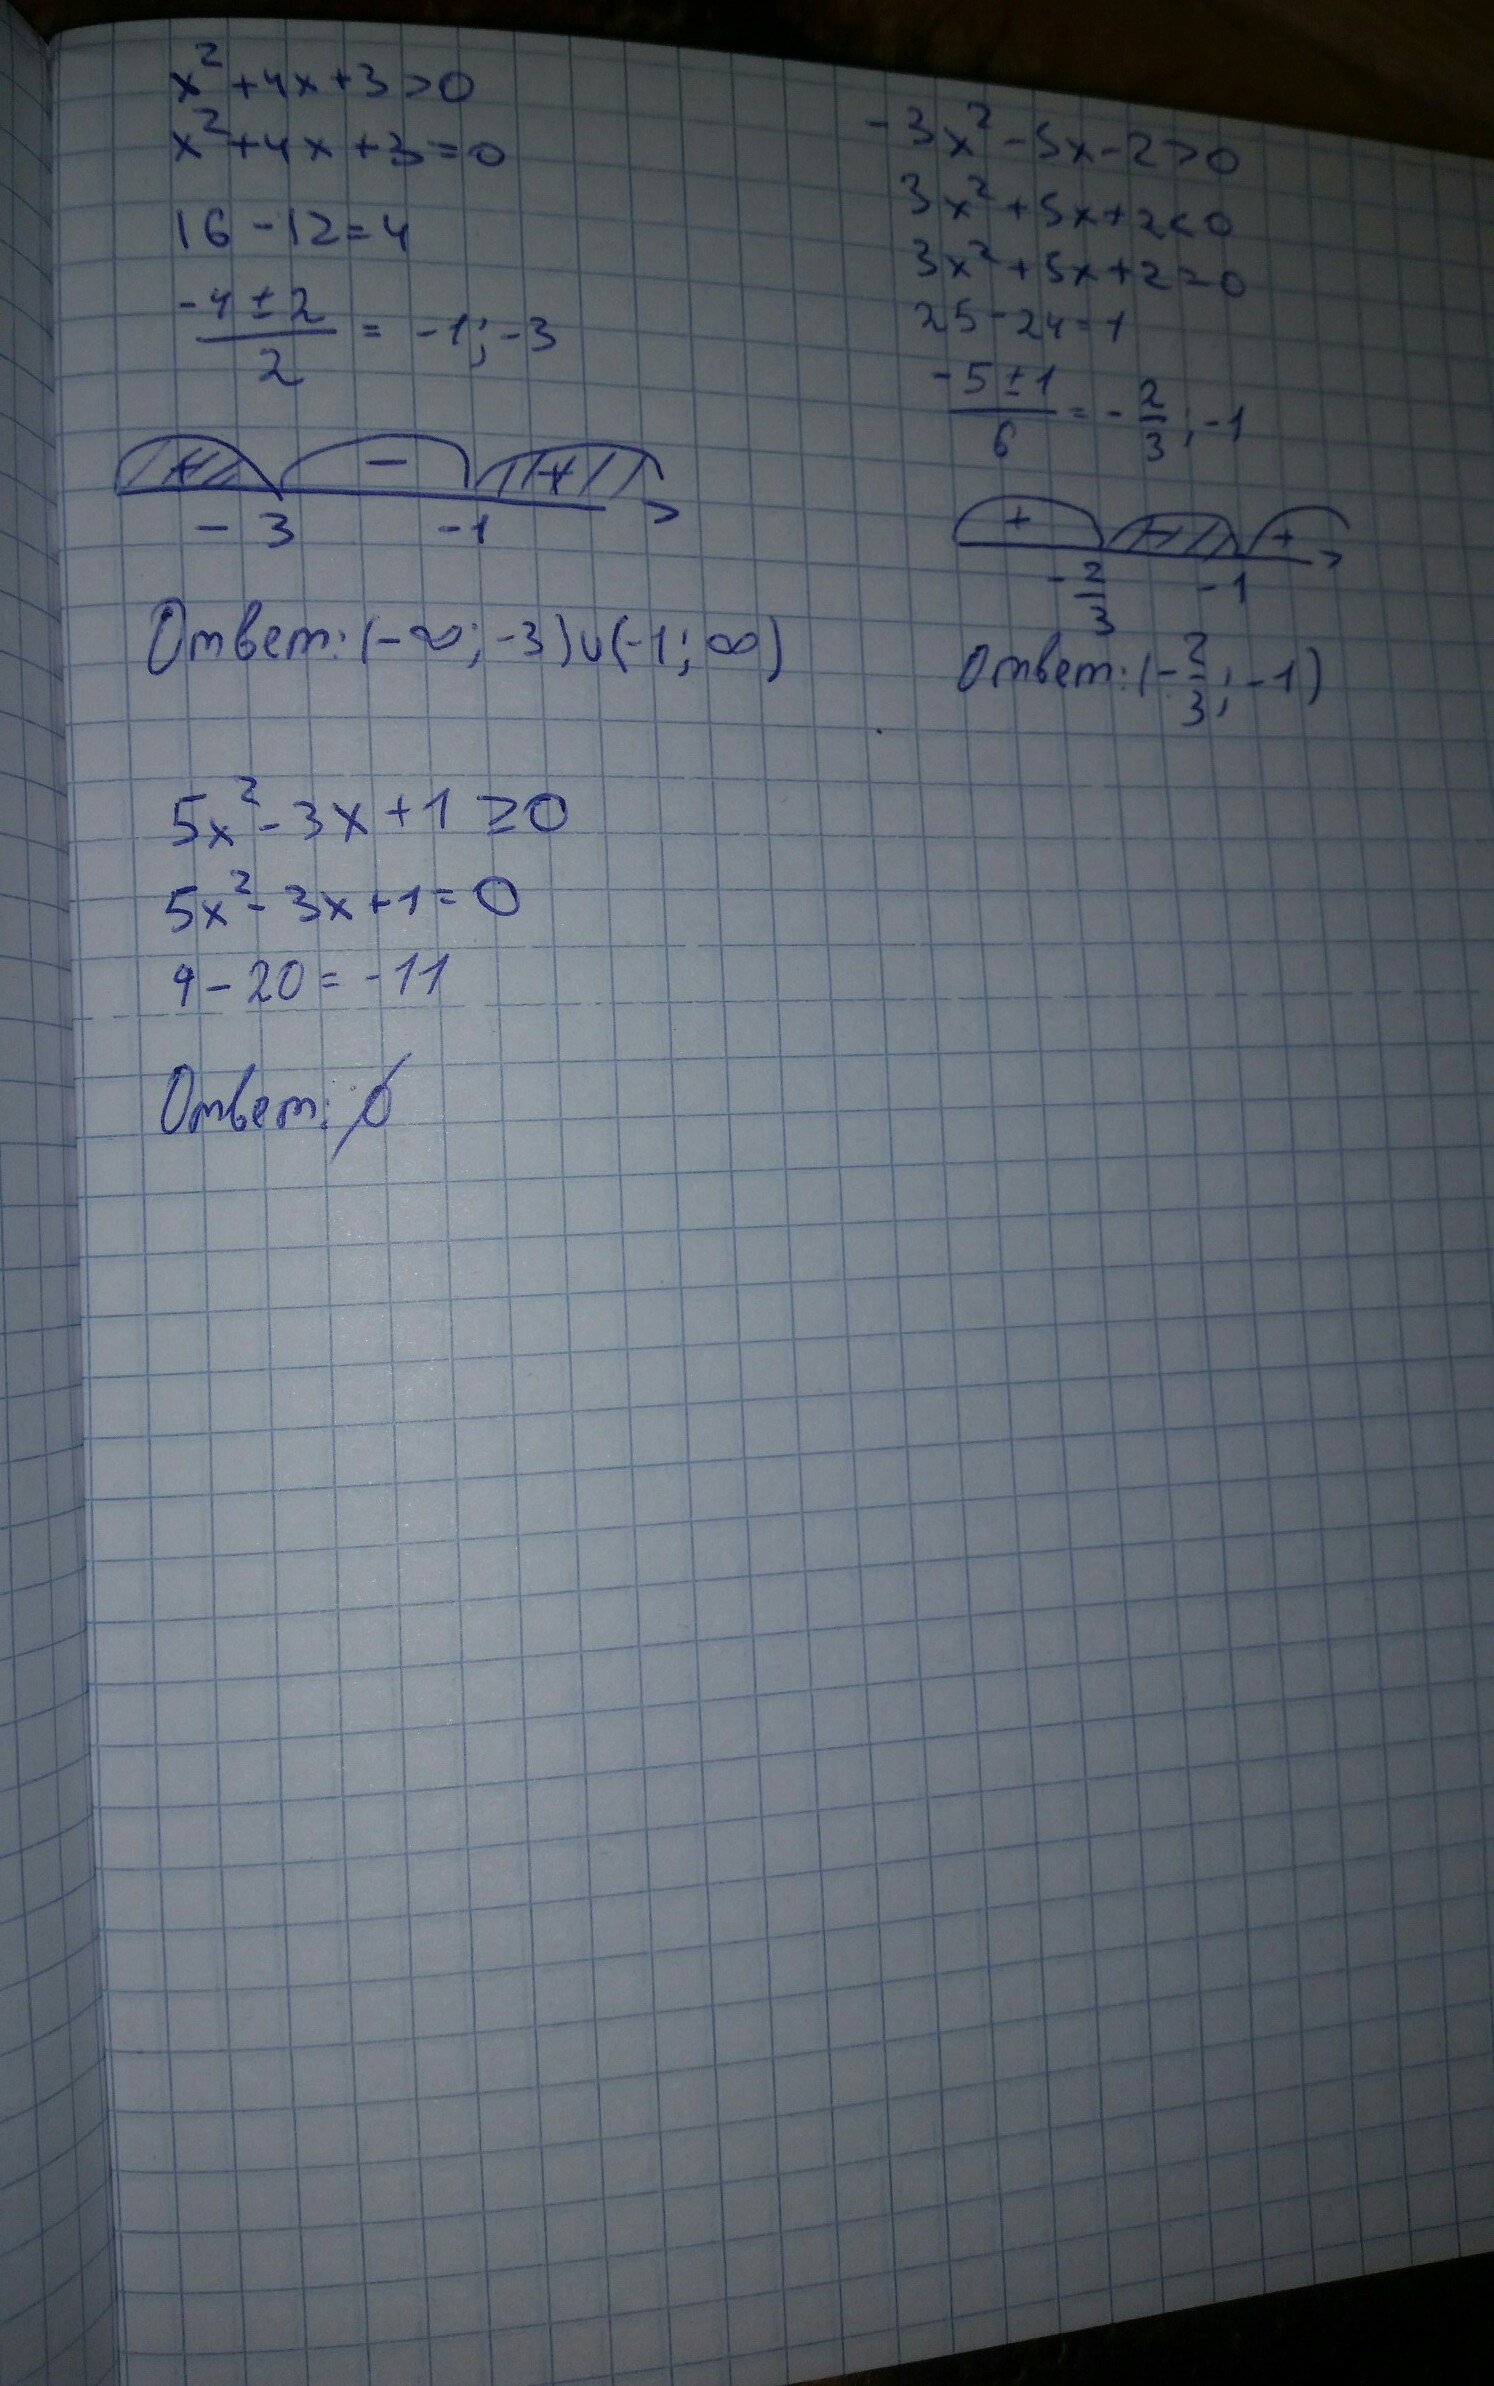 x² + 4x + 3 > 0
x² + 4x + 3 = 0
16 - 12 = 4
(-4 ± 2)/2 = -1; -3
+ - +
-3 -1
Ответ: (-∞; -3) ∪ (-1; ∞)
-3x² - 5x - 2 > 0
3x² + 5x + 2 < 0
3x² + 5x + 2 = 0
25 - 24 = 1
(-5 ± 1)/6 = -2/3; -1
+ - +
-2/3 -1
Ответ: (-2/3; -1)
5x² - 3x + 1 ≥ 0
5x² - 3x + 1 = 0
9 - 20 = -11
Ответ: ∅